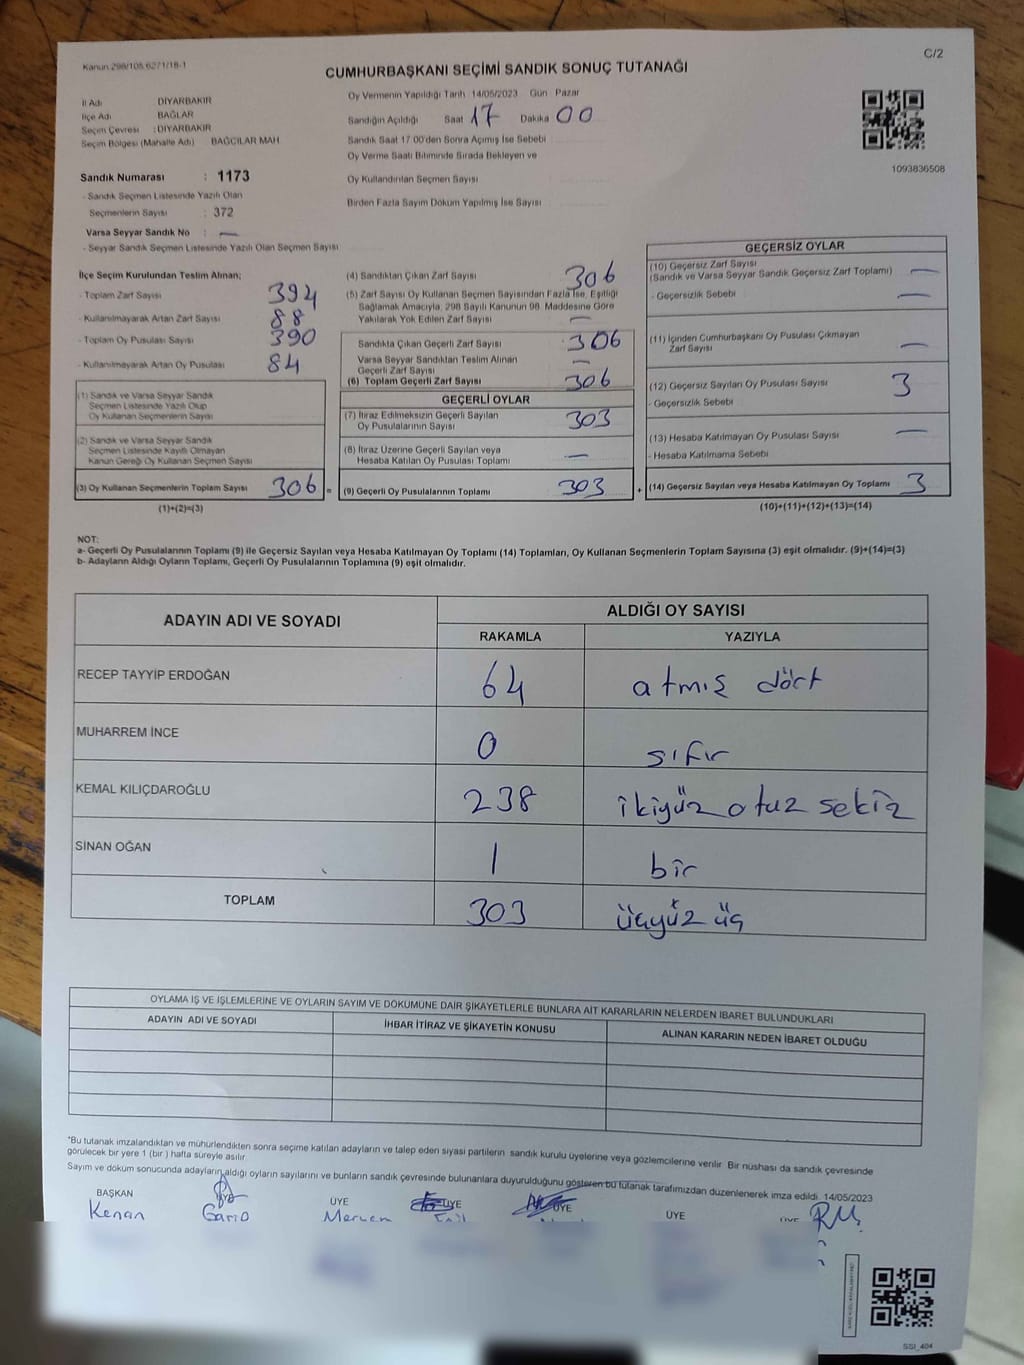 Kanun 298/105 6271/18-1
C/2
CUMHURBAŞKANI SEÇİMİ SANDIK SONUÇ TUTANAĞI
İl Adı DİYARBAKIR
İlçe Adı BAĞLAR
Seçim Çevresi : DİYARBAKIR
Seçim Bölgesi (Mahalle Adı) BAĞCILAR MAH
Sandık Numarası : 1173
- Sandık Seçmen Listesinde Yazılı Olan
Seçmenlerin Sayısı : 372
Varsa Seyyar Sandık No : —
- Seyyar Sandık Seçmen Listesinde Yazılı Olan Seçmen Sayısı
Oy Vermenin Yapıldığı Tarih 14/05/2023 Gün Pazar
Sandığın Açıldığı Saat 17 Dakika 00
Sandık Saat 17:00'den Sonra Açımış İse Sebebi
Oy Verme Saati Bitiminde Sırada Bekleyen ve
Oy Kullandırılan Seçmen Sayısı
Birden Fazla Sayım Döküm Yapılmış İse Sayısı
1093836508
İlçe Seçim Kurulundan Teslim Alınan;
- Toplam Zarf Sayısı 394
- Kullanılmayarak Artan Zarf Sayısı 88
- Toplam Oy Pusulası Sayısı 390
- Kullanılmayarak Artan Oy Pusulası 84
(1) Sandık ve Varsa Seyyar Sandık
Seçmen Listesinde Yazılı Olup
Oy Kullanan Seçmenlerin Sayısı
(2) Sandık ve Varsa Seyyar Sandık
Seçmen Listesinde Kayıtlı Olmayan
Kanun Gereği Oy Kullanan Seçmen Sayısı
(3) Oy Kullanan Seçmenlerin Toplam Sayısı 306 =
(1)+(2)=(3)
(4) Sandıktan Çıkan Zarf Sayısı 306
(5) Zarf Sayısı Oy Kullanan Seçmen Sayısından Fazla İse, Eşitliği
Sağlamak Amacıyla, 298 Sayılı Kanunun 98. Maddesine Göre
Yakılarak Yok Edilen Zarf Sayısı —
Sandıkta Çıkan Geçerli Zarf Sayısı : 306
Varsa Seyyar Sandıktan Teslim Alınan
Geçerli Zarf Sayısı —
(6) Toplam Geçerli Zarf Sayısı 306
GEÇERLİ OYLAR
(7) İtiraz Edilmeksizin Geçerli Sayılan
Oy Pusulalarının Sayısı 303
(8) İtiraz Üzerine Geçerli Sayılan veya
Hesaba Katılan Oy Pusulası Toplamı —
(9) Geçerli Oy Pusulalarının Toplamı 303 +
GEÇERSİZ OYLAR
(10) Geçersiz Zarf Sayısı
(Sandık ve Varsa Seyyar Sandık Geçersiz Zarf Toplamı) —
- Geçersizlik Sebebi —
(11) İçinden Cumhurbaşkanı Oy Pusulası Çıkmayan
Zarf Sayısı —
(12) Geçersiz Sayılan Oy Pusulası Sayısı 3
- Geçersizlik Sebebi
(13) Hesaba Katılmayan Oy Pusulası Sayısı —
- Hesaba Katılmama Sebebi
(14) Geçersiz Sayılan veya Hesaba Katılmayan Oy Toplamı 3
(10)+(11)+(12)+(13)=(14)
NOT:
a- Geçerli Oy Pusulalarının Toplamı (9) ile Geçersiz Sayılan veya Hesaba Katılmayan Oy Toplamı (14) Toplamları, Oy Kullanan Seçmenlerin Toplam Sayısına (3) eşit olmalıdır. (9)+(14)=(3)
b- Adayların Aldığı Oyların Toplamı, Geçerli Oy Pusulalarının Toplamına (9) eşit olmalıdır.
ADAYIN ADI VE SOYADI ALDIĞI OY SAYISI
RAKAMLA YAZIYLA
RECEP TAYYİP ERDOĞAN 64 atmış dört
MUHARREM İNCE 0 sıfır
KEMAL KILIÇDAROĞLU 238 ikiyüz otuz sekiz
SİNAN OĞAN 1 bir
TOPLAM 303 üçyüz üç
OYLAMA İŞ VE İŞLEMLERİNE VE OYLARIN SAYIM VE DÖKÜMÜNE DAİR ŞİKAYETLERLE BUNLARA AİT KARARLARIN NELERDEN İBARET BULUNDUKLARI
ADAYIN ADI VE SOYADI İHBAR İTİRAZ VE ŞİKAYETİN KONUSU ALINAN KARARIN NEDEN İBARET OLDUĞU
*Bu tutanak imzalandıktan ve mühürlendikten sonra seçime katılan adayların ve talep eden siyasi partilerin sandık kurulu üyelerine veya gözlemcilerine verilir. Bir nüshası da sandık çevresinde
görülecek bir yere 1 (bir ) hafta süreyle asılır.
Sayım ve döküm sonucunda adayların aldığı oyların sayılarını ve bunların sandık çevresinde bulunanlara duyurulduğunu gösteren bu tutanak tarafımızdan düzenlenerek imza edildi. 14/05/2023
BAŞKAN ÜYE ÜYE ÜYE ÜYE ÜYE
Kenan
SSI_404